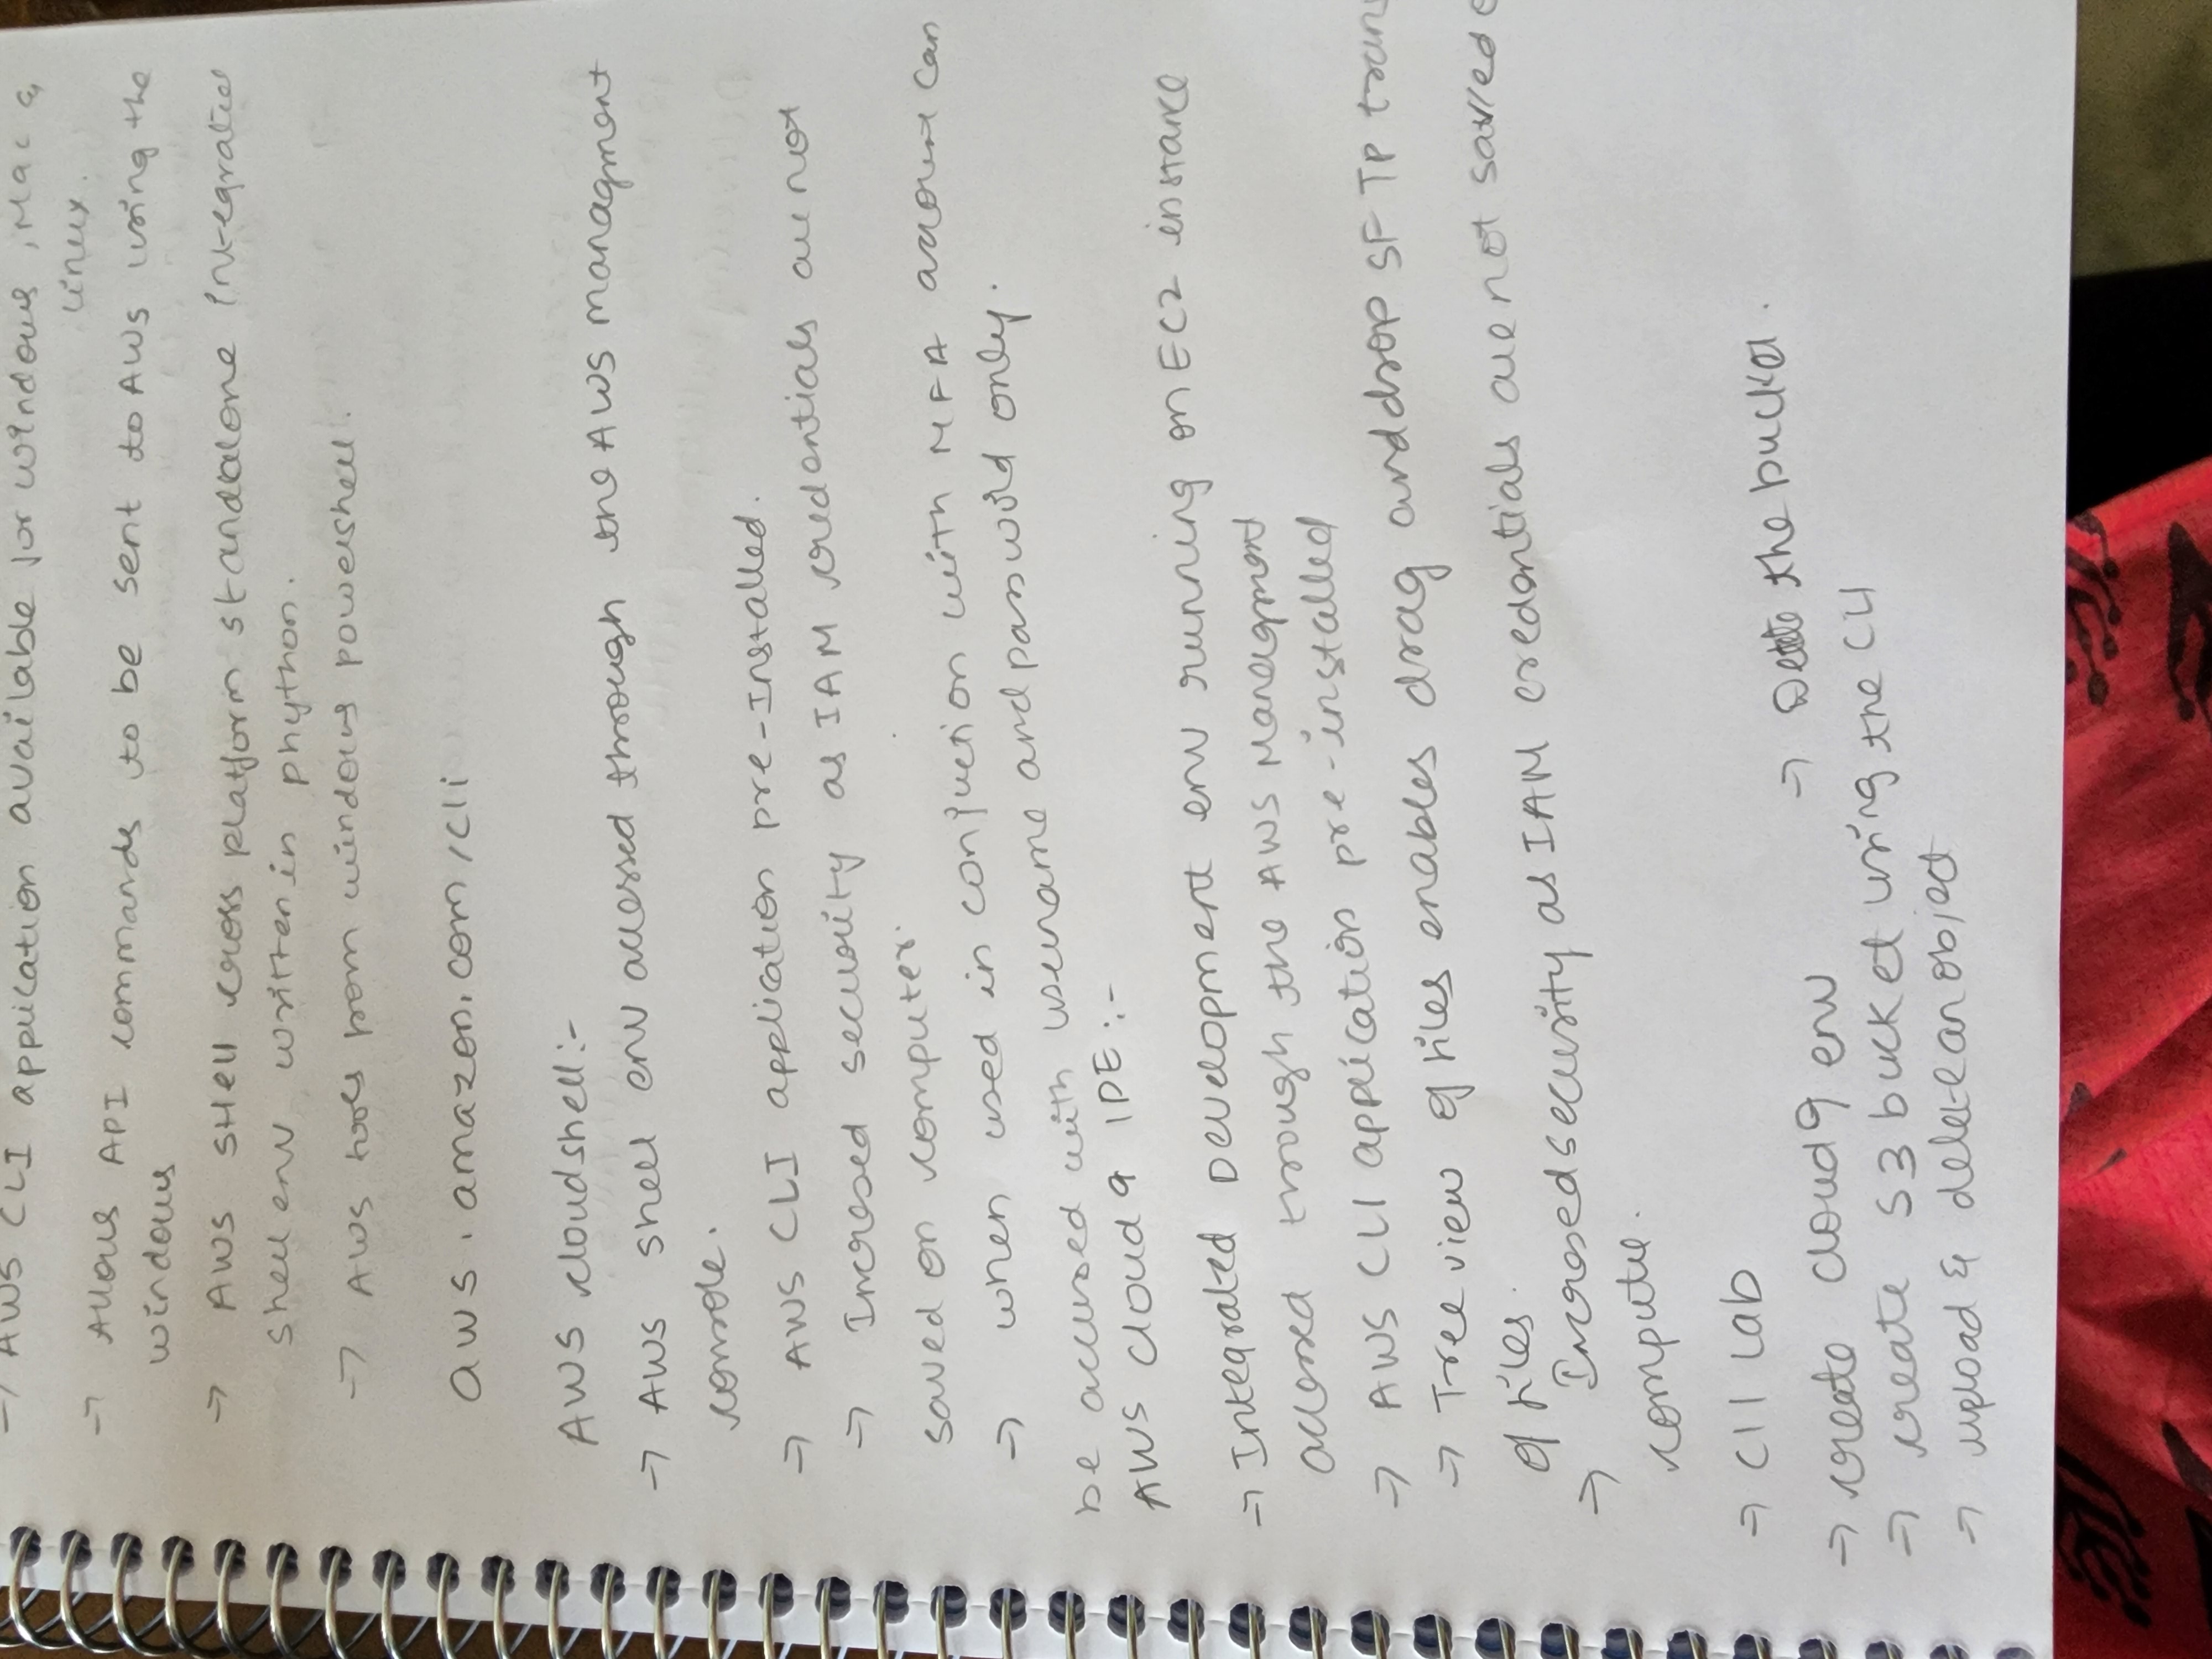 → AWS CLI application available for windows, Mac &
linux.
→ Allows API commands to be sent to AWS using the
windows
→ AWS SHell cross platform standalone Integrated
shell env written in phython.
→ AWS tools from windows powershell.
aws.amazon.com/cli
AWS cloudshell:-
→ AWS shell env accessed through the AWS managment
console.
→ AWS CLI application pre-Installed.
→ Incresed security as IAM credentials are not
saved on computer.
→ when used in conjuction with MFA account can
be accessed with username and password only.
AWS cloud 9 IDE:-
→ Integrated Development env running on EC2 instance
accessed through the AWS Managment
→ AWS CLI application pre-installed
→ Tree view of files enables drag and drop SFTP trans
of files.
→ Incresed security as IAM credentials are not saved
computer.
→ Cli Lab
→ Delete the bucket.
→ create cloud 9 env
→ create S3 bucket using the CLI
→ upload & delete an object